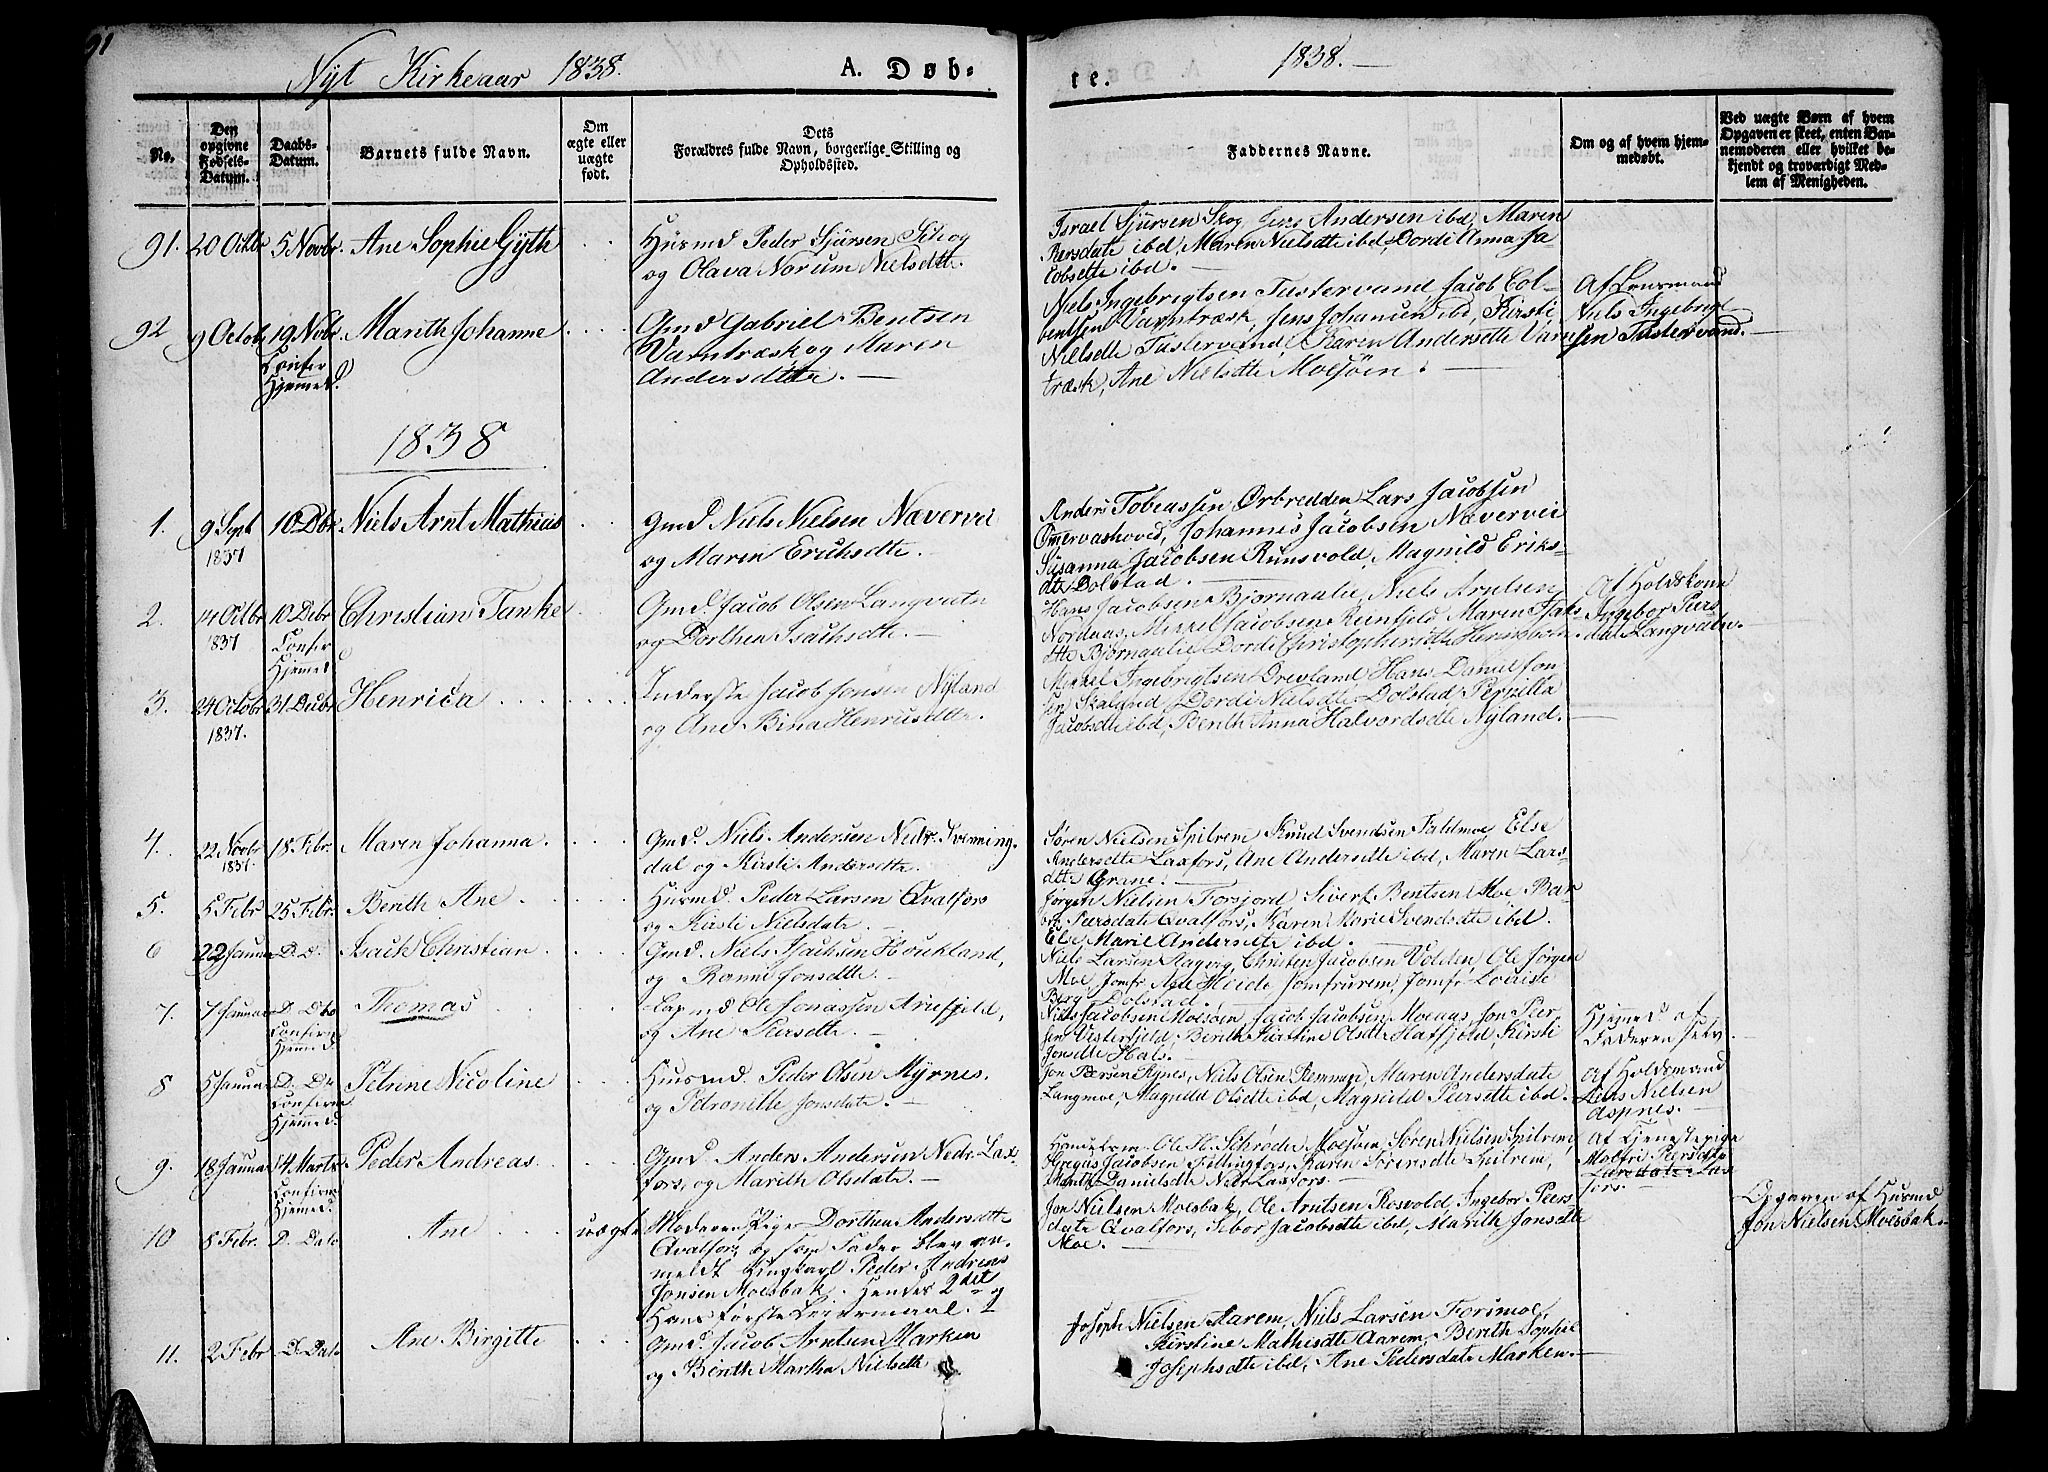 91
Nyt Kirkeaar 1838.
A. Døb-
te.
1838.
No.
Den opgivne Fødsels-Datum.
Daabs-Datum.
Barnets fulde Navn.
Om ægte eller uægte født.
Dets
Forældres fulde Navn, borgerlige Stilling og Opholdssted.
Faddernes Navne.
Om og af hvem hjem-
medøbt.
Ved uægte Børn af hvem
Opgaven er skeet, enten Bar-
nemoderen eller hvilket be-
kjendt og troværdigt Med-
lem af Menigheden.
91. 20 Octbr 5 Novbr. Ane Sophie Gyth
Huusmd Peder Sjursen
og Olava Norum Nielsdtr.
Israel Sjursen Skog Jens Andersen ibd, Maren
Persdatr ibd, Maren Nielsdtr ibd, Dordi Anna Ja
cobsdtr ibd.
92 9 Octob 19 Nobr Marith Johanne
Confir
Hjemed.
Gmd Gabriel Bentsen
Varntræsk og Maren
Andersdtr.
Niels Ingebrigtsen Tustervand Jacob Col-
bentsen Varntræsk, Jens Johansen ibd, Kirsti
Nielsdtr Tustervand, Karen Andersdtr Varn
træsk, Ane Nielsdtr Moesøen.
Af Lensmand
Niels Ingebrigt
sen Tustervand.
1838
1. 9 Sept 1837 10 Dbr Niels Arnt Mathias
Gmd Niels Nielsen Næverved
og Maren Erichsdtr.
Anders Tobiassen Ørbredden Lars Jacobsen
Omervashoved, Johannes Jacobsen Næverved
Susanna Jacobsen Runsvold, Magnild Eriks-
dtr Dolstad.
2. 14 Octbr 1837 10 Debr Christian Tanke
Confir
Hjemed
Gmd. Jacob Olsen Langvatn
og Dorthea Isachsdtr.
Hans Jacobsen Bjørnaalie, Niels Arntsen
Nordaas, Mikkel Jacobsen Reinfjeld Maren Isaks
dtr Bjørnaalie Dordi Christophersdtr
Af Holdskone
Ingebor Peers
dtr Langvatn.
3. 24 Octobr 1837. 31 Debr Henrica
Inderste Jacob Jonsen Nyland
og Ane Bina Henricsdtr.
Mikkel Ingebrigtsen Drevland Hans Danielson
Skaland Dordi Nielsdtr Dolstad Pernilla
Jacobsdtr ibd, Berith Anna Halvordsdtr Nyland.
4. 22 Novbr 1837. 18 Febr. Maren Johanna.
Gmd. Niels Andersen Nedr. Svenning-
dal og Kirsti Andersdtr.
Søren Nielsen Spilrem Knud Svendsen Fældmoe Else
Andersdtr Laxfors, Ane Andersdtr ibd, Maren Lars-
dtr Grane.
5. 5 Febr 25 Febr. Berith Ane
Husmd. Peder Larsen Qvalfors
og Kirsti Nielsdatr.
Jørgen Nielsen Forsjord Sivert Bentsen Moe Bar
bro Peersdatr Qvalfors, Karen Marie Svendsdtr ibd.
Else Marie Andersdtr ibd.
6 22 Januar D. D. Isach Christian
Gmd. Niels Isachsen Houkland,
og Rannie Jonsdtr.
Niels Larsen Ragvig, Christen Jacobsen Volden, Ole Jørgen
Moe, Jomfr Ane Heide Jomfrurem, Jomfr Louise
Berg Dolstad.
7. 7 Januar D. Dto Thomas
Confirm
Hjemmed
Lapmd Ole Jonassen Arnefjeld,
og Ane Peersdtr.
Niels Jacobsen Moesøen, Jacob Jacobsen Moeaas, Jon Peer-
sen Vesterfjeld, Berith Kirstine Olsdtr Hatfjeld, Kirsti
Jonsdtr Hals.
Hjemed af
Faderen selv
8 5 Januar D. Do Petrine Nicoline
Confirm
Hjemmed
Husmd. Peder Olsen Myrnes.
og Petronille Jonsdatr.
Jon Peersen Rynes, Niels Olsen Remmen, Maren Andersdatr
Langmoe, Magnild Olsdtr ibd, Magnild Peersdtr ibd.
Af Holdsmand
Nielsen
9. 18 Januar 4 Marts Peder Andreas.
Confirm
Hjemed.
Gmd. Anders Andersen Nedr. Lax-
fors, og Marith Olsdatr.
Ole H. Schrøder Moesøen, Søren Nielsen Spilrem,
Jacobsen Spellingfors, Karen Sørensdtr Spilrem,
Marith Danielsdtr Nedr Laxfors.
Af Tjenestepige
Malfri Peersdtr
Larsdatr Lax
fors.
10 8 Febr. D. Dato Ane uægte
Moderen Pige Dorthea Andersdtr
Qvalfors, og som Fader blev an-
meldt Ungkarl Peder Andreas
Jonsen Moesbak. Hendes 2det og
Hans første Leiermaal.
Jon Nielsen Moesbak, Ole Arntsen Rosvold, Ingebor Peers
datr Qvalfors, Sibor Jacobsdtr ibd, Marith Jonsdtr
Moe.
Opgaven af Husmd
Jon Nielsen Moesbak.
11. 2 Febr D. Dato Ane Birgitte
Gmd. Jacob Arntsen Marken
og Berith Martha Nielsdtr
Joseph Nielsen Aarem, Niels Larsen Forsmoe,
Kirstine Mathisdtr Aarem, Berith Sophie
Josephsdtr ibd, Ane Pedersdatr Marken.